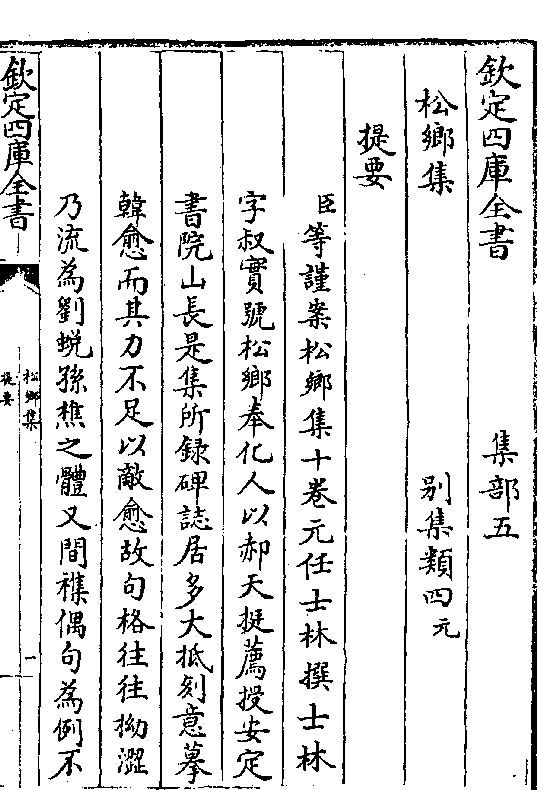 欽定四庫全書　集部五
松鄉集　別集類四元
提要
臣等謹案松鄉集十卷元任士林撰士林
字叔實號松鄉奉化人以郝天挺薦授安定
書院山長是集所錄碑誌居多大抵刻意摹
韓愈而其力不足以敵愈故句格往往拗澀
乃流為劉蛻孫樵之體又間襍偶句為例不
欽定四庫全書
松鄉集
提要
一